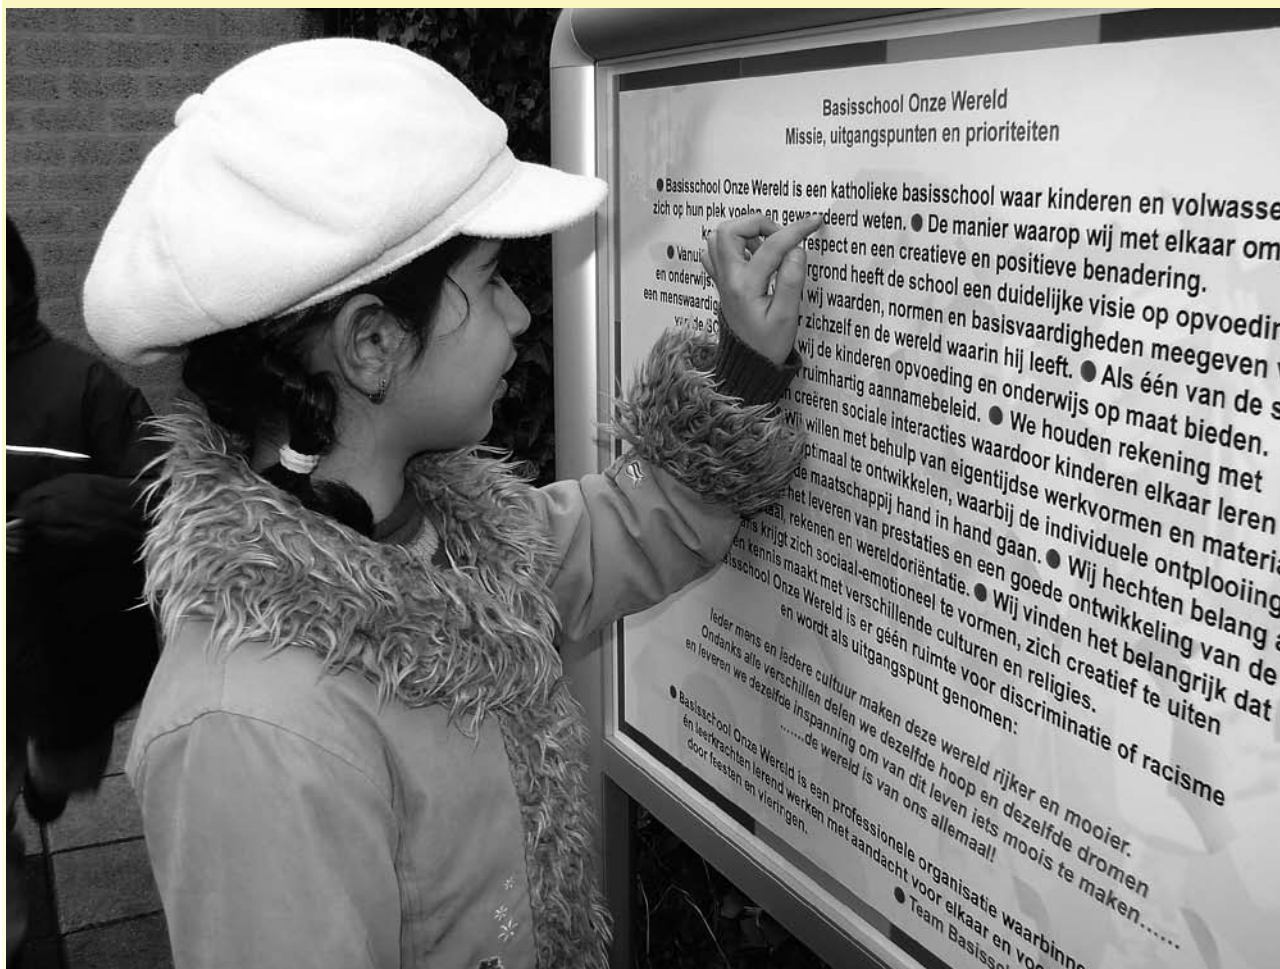 Basisschool Onze Wereld
Missie, uitgangspunten en prioriteiten
● Basisschool Onze Wereld is een katholieke basisschool waar kinderen en volwasse
zich op hun plek voelen en gewaardeerd weten. ● De manier waarop wij met elkaar om
respect en een creatieve en positieve benadering.
● heeft de school een duidelijke visie op opvoedin
en onderwijs. wij waarden, normen en basisvaardigheden meegeven v
een menswaardig zichzelf en de wereld waarin hij leeft. ● Als één van de s
van de wij de kinderen opvoeding en onderwijs op maat bieden.
ruimhartig aannamebeleid. ● We houden rekening met
creëren sociale interacties waardoor kinderen elkaar leren
Wij willen met behulp van eigentijdse werkvormen en materia
optimaal te ontwikkelen, waarbij de individuele ontplooiing
de maatschappij hand in hand gaan. ● Wij hechten belang a
het leveren van prestaties en een goede ontwikkeling van de
rekenen en wereldoriëntatie. ● Wij vinden het belangrijk dat
krijgt zich sociaal-emotioneel te vormen, zich creatief te uiten
en kennis maakt met verschillende culturen en religies.
Onze Wereld is er géén ruimte voor discriminatie of racisme
en wordt als uitgangspunt genomen:
Ieder mens en iedere cultuur maken deze wereld rijker en mooier.
Ondanks alle verschillen delen we dezelfde hoop en dezelfde dromen
en leveren we dezelfde inspanning om van dit leven iets moois te maken.......
......de wereld is van ons allemaal!
● Basisschool Onze Wereld is een professionele organisatie waarbinne
én leerkrachten lerend werken met aandacht voor elkaar en voo
door feesten en vieringen.
● Team Basissc